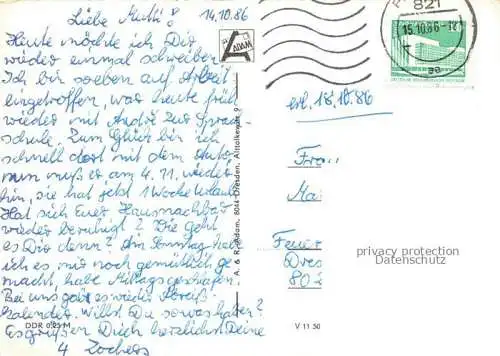 Liebe Mutti! 14.10.86
Heute möchte ich Dir
wieder einmal schreiben.
Ich bin soeben auf Arbeit
eingetroffen, war heute früh
wieder mit André zur Sprach
schule. Zum Glück bin ich
schnell dort mit dem Auto,
nun muß er am 4.11. wieder
hin, sie hat jetzt 1 Woche Urlaub.
Hat sich Euer Hausnachbar
wieder beruhigt? Wie geht
es Dir denn? Am Sonntag hab
ich es mir noch gemütlich ge
macht, habe Mittagsgeschlafen.
Bei uns gibt es wieder Strauß
kalender. Willst Du sowas haben?
Es grüßen Dich herzlichst Deine
4 Zochers
DDR 0,25 M
ADAM
A. & R. Adam, 8044 Dresden, Altolkewitz 9
V 11 50
821
15.10.86
erh. 18.10.86
Frau
Ma
Feuer
Dres
802
privacy protection
Datenschutz